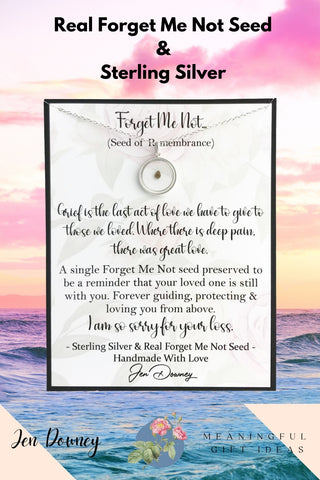 Real Forget Me Not Seed
&
Sterling Silver
Forget Me Not...
(Seed of Remembrance)
Grief is the last act of love we have to give to
those we loved. Where there is deep pain,
there was great love.
A single Forget Me Not seed preserved to
be a reminder that your loved one is still
with you. Forever guiding, protecting &
loving you from above.
I am so sorry for your loss.
- Sterling Silver & Real Forget Me Not Seed -
Handmade With Love
Jen Downey
Jen Downey
MEANINGFUL
GIFT IDEAS